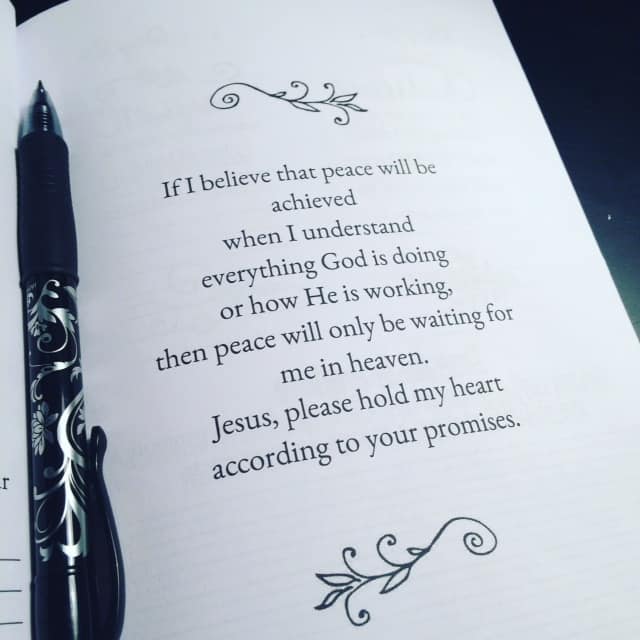 If I believe that peace will be
achieved
when I understand
everything God is doing
or how He is working,
then peace will only be waiting for
me in heaven.
Jesus, please hold my heart
according to your promises.